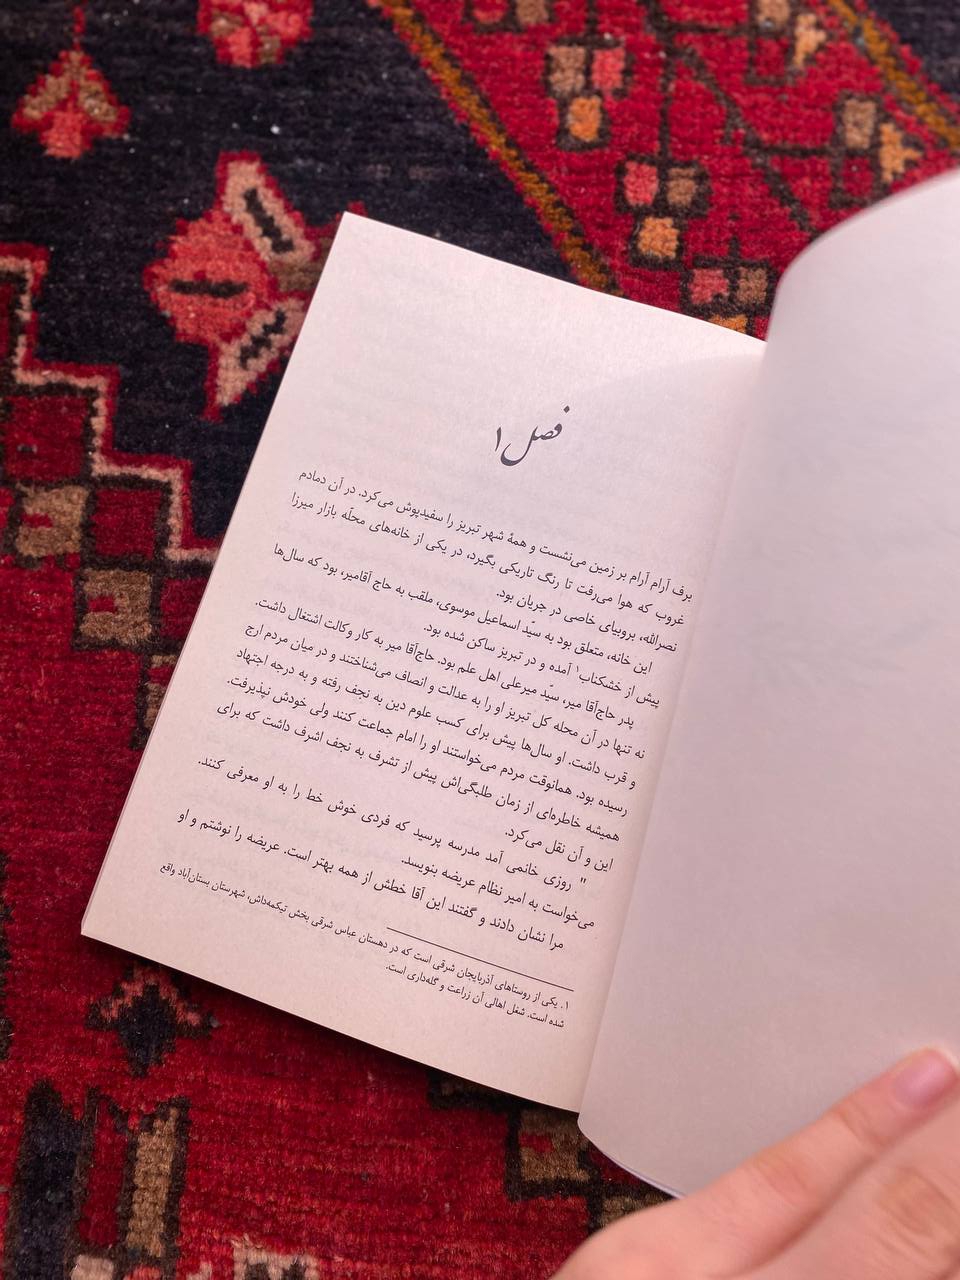 فصل ۱
برف آرام آرام بر زمین می‌نشست و همهٔ شهر تبریز را سفیدپوش می‌کرد. در آن دمادم
غروب که هوا می‌رفت تا رنگ تاریکی بگیرد، در یکی از خانه‌های محلّه بازار میرزا
نصرالله، بروبیای خاصی در جریان بود.
این خانه، متعلق بود به سیّد اسماعیل موسوی، ملقب به حاج آقامیر، بود که سال‌ها
پیش از خشکناب۱ آمده و در تبریز ساکن شده بود.
پدر حاج‌آقا میر، سیّد میرعلی اهل علم بود. حاج‌آقا میر به کار وکالت اشتغال داشت.
نه تنها در آن محله کل تبریز او را به عدالت و انصاف می‌شناختند و در میان مردم ارج
و قرب داشت. او سال‌ها پیش برای کسب علوم دین به نجف رفته و به درجه اجتهاد
رسیده بود. همانوقت مردم می‌خواستند او را امام جماعت کنند ولی خودش نپذیرفت.
همیشه خاطره‌ای از زمان طلبگی‌اش پیش از تشرف به نجف اشرف داشت که برای
این و آن نقل می‌کرد.
" روزی خانمی آمد مدرسه پرسید که فردی خوش خط را به او معرفی کنند.
می‌خواست به امیر نظام عریضه بنویسد.
مرا نشان دادند و گفتند این آقا خطش از همه بهتر است. عریضه را نوشتم و او
۱. یکی از روستاهای آذربایجان شرقی است که در دهستان عباس شرقی بخش تیکمه‌داش، شهرستان بستان‌آباد واقع
شده است. شغل اهالی آن زراعت و گله‌داری است.